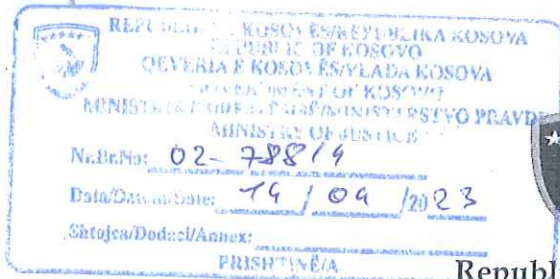 REPUBLIKA E KOSOVËS/REPUBLIKA KOSOVA
REPUBLIC OF KOSOVO
QEVERIA E KOSOVËS/VLADA KOSOVA
GOVERNMENT OF KOSOVO
MINISTRIA E DREJTËSISË/MINISTARSTVO PRAVDE
MINISTRY OF JUSTICE
Nr.Br.No: 02-788/4
Data/Datum/Date: 14 / 04 /2023
Shtojca/Dodaci/Annex:
PRISHTINË/A
Republ